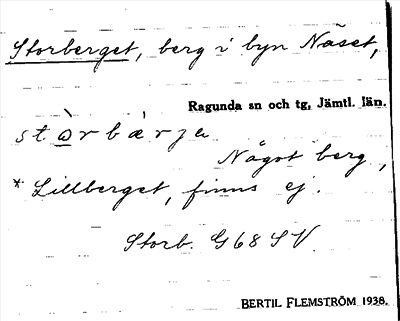 Storberget, berg i byn Näset,
Ragunda sn och tg, Jämtl. län.
stò̱rbàrja
Något berg,
* Lillberget, finns ej.
Storb. G68 SV
BERTIL FLEMSTRÖM 1938.